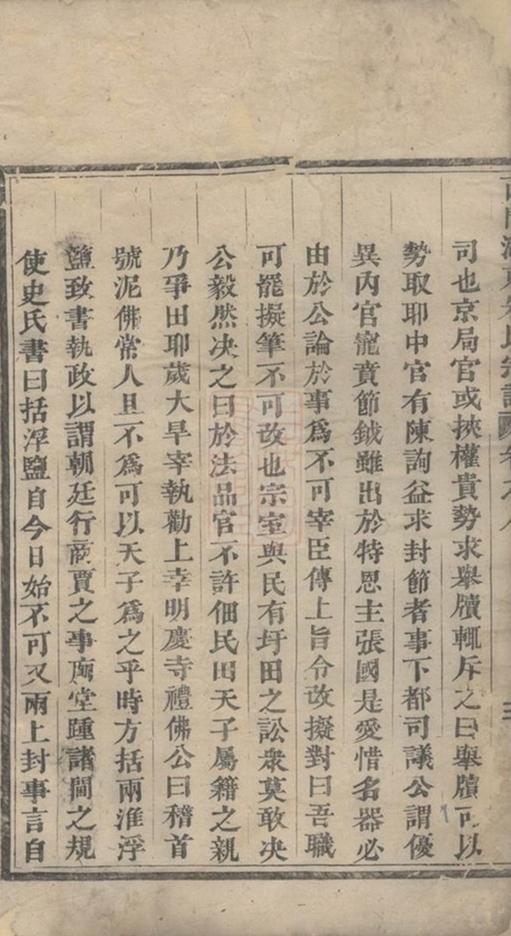 司也京局官或挾權貴勢求舉牘輒斥之曰舉牘可以
勢取耶中官有陳詢益求封節者事下都司議公謂優
異內官寵賁節鉞雖出於特恩主張國是愛惜名器必
由於公論於事爲不可宰臣傳上旨令改擬對曰吾職
可罷擬筆不可改也宗室與民有圩田之訟衆莫敢决
公毅然决之曰於法品官不許佃民田天子屬籍之親
乃爭田耶歲大旱宰執勸上幸明慶寺禮佛公曰稽首
號泥佛常人且不爲可以天子爲之乎時方括兩淮浮
鹽致書執政以謂朝廷行商賈之事廟堂踵諸閫之規
使史氏書曰括浮鹽自今日始不可又兩上封事言自